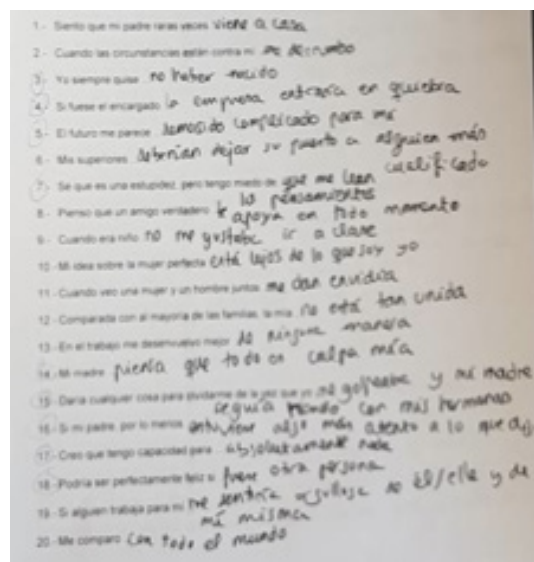 1.- Siento que mi padre raras veces viene a casa
2.- Cuando las circunstancias están contra mi me derrumbo
3.- Yo siempre quise no haber nacido
4.- Si fuese el encargado la empresa entraría en quiebra
5.- El futuro me parece demasido complicado para mi
6.- Mis superiores deberían dejar su puesto a alguien más
cualificado
7.- Se que es una estupidez, pero tengo miedo de que me lean
los pensamientos
8.- Pienso que un amigo verdadero te apoya en todo momento
9.- Cuando era niño no me gustaba ir a clase
10.- Mi idea sobre la mujer perfecta está lejos de lo que soy yo
11.- Cuando veo una mujer y un hombre juntos me dan envidia
12.- Comparada con al mayoría de las familias, la mía no está tan unida
13.- En el trabajo me desenvuelvo mejor de ninguna manera
14.- Mi madre piensa que todo es culpa mía
15.- Daría cualquier cosa para olvidarme de la vez que yo me golpeaba y mi madre
seguía con mis hermanos
16.- Si mi padre, por lo menos estuviese algo más atento a lo que
17.- Creo que tengo capacidad para absolutamente nada
18.- Podría ser perfectamente feliz si fuese otra persona
19.- Si alguien trabaja para mi me sentiría orgullosa de él/ella y de
mí misma
20.- Me comparo con todo el mundo